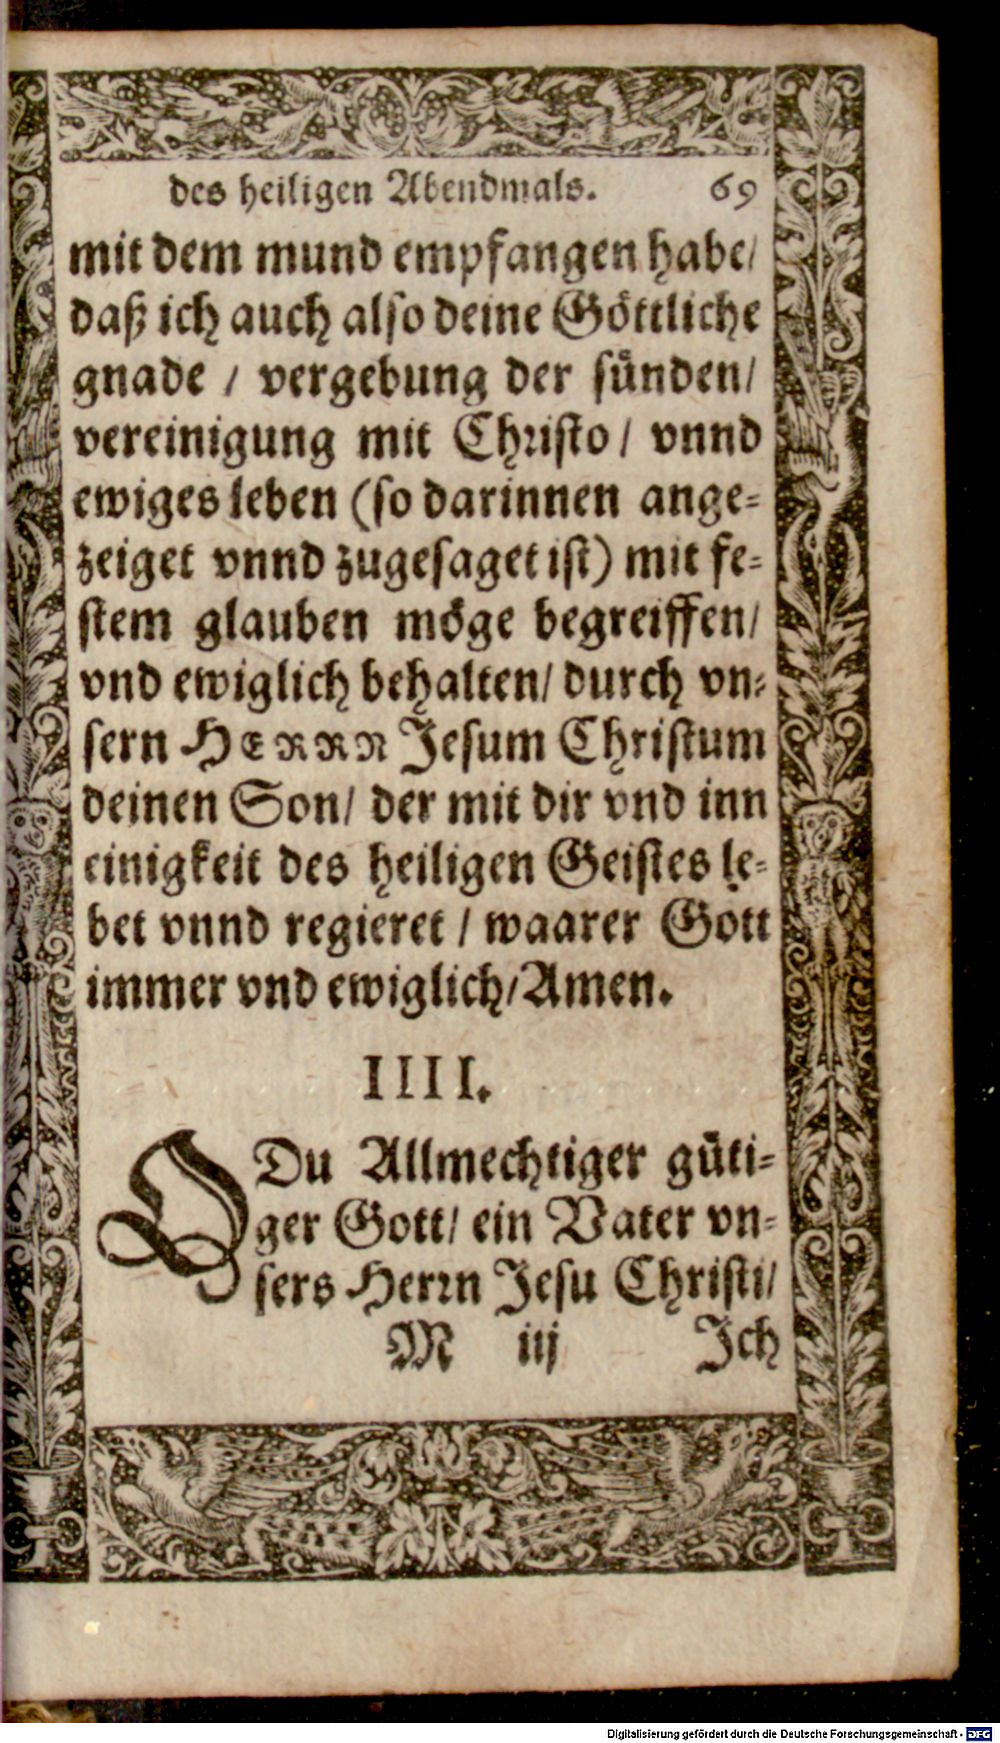 des heiligen Abendmals. 69
mit dem mund empfangen habe/
daß ich auch also deine Göttliche
gnade / vergebung der sünden/
vereinigung mit Christo / vnnd
ewiges leben (so darinnen ange=
zeiget vnnd zugesaget ist) mit fe=
stem glauben möge begreiffen/
vnd ewiglich behalten/ durch vn=
sern HERRN Jesum Christum
deinen Son/ der mit dir vnd inn
einigkeit des heiligen Geistes le=
bet vnnd regieret / waarer Gott
immer vnd ewiglich/ Amen.
IIII.
ODu Allmechtiger güti=
ger Gott/ ein Vater vn=
sers Herrn Jesu Christi/
M iij Ich
Digitalisierung gefördert durch die Deutsche Forschungsgemeinschaft - DFG